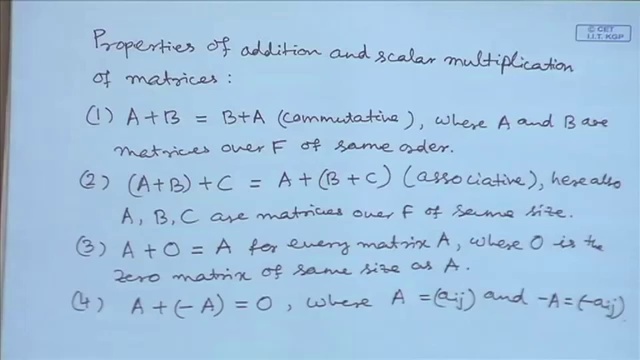 © CET
I.I.T. KGP
Properties of addition and scalar multiplication
of matrices :
(1) A+B = B+A (commutative), where A and B are
matrices over F of same order.
(2) (A+B)+C = A+(B+C) (associative), here also
A, B, C are matrices over F of same size.
(3) A+O = A for every matrix A, where O is the
zero matrix of same size as A.
(4) A+(-A) = O, where A = (aij) and -A = (-aij)